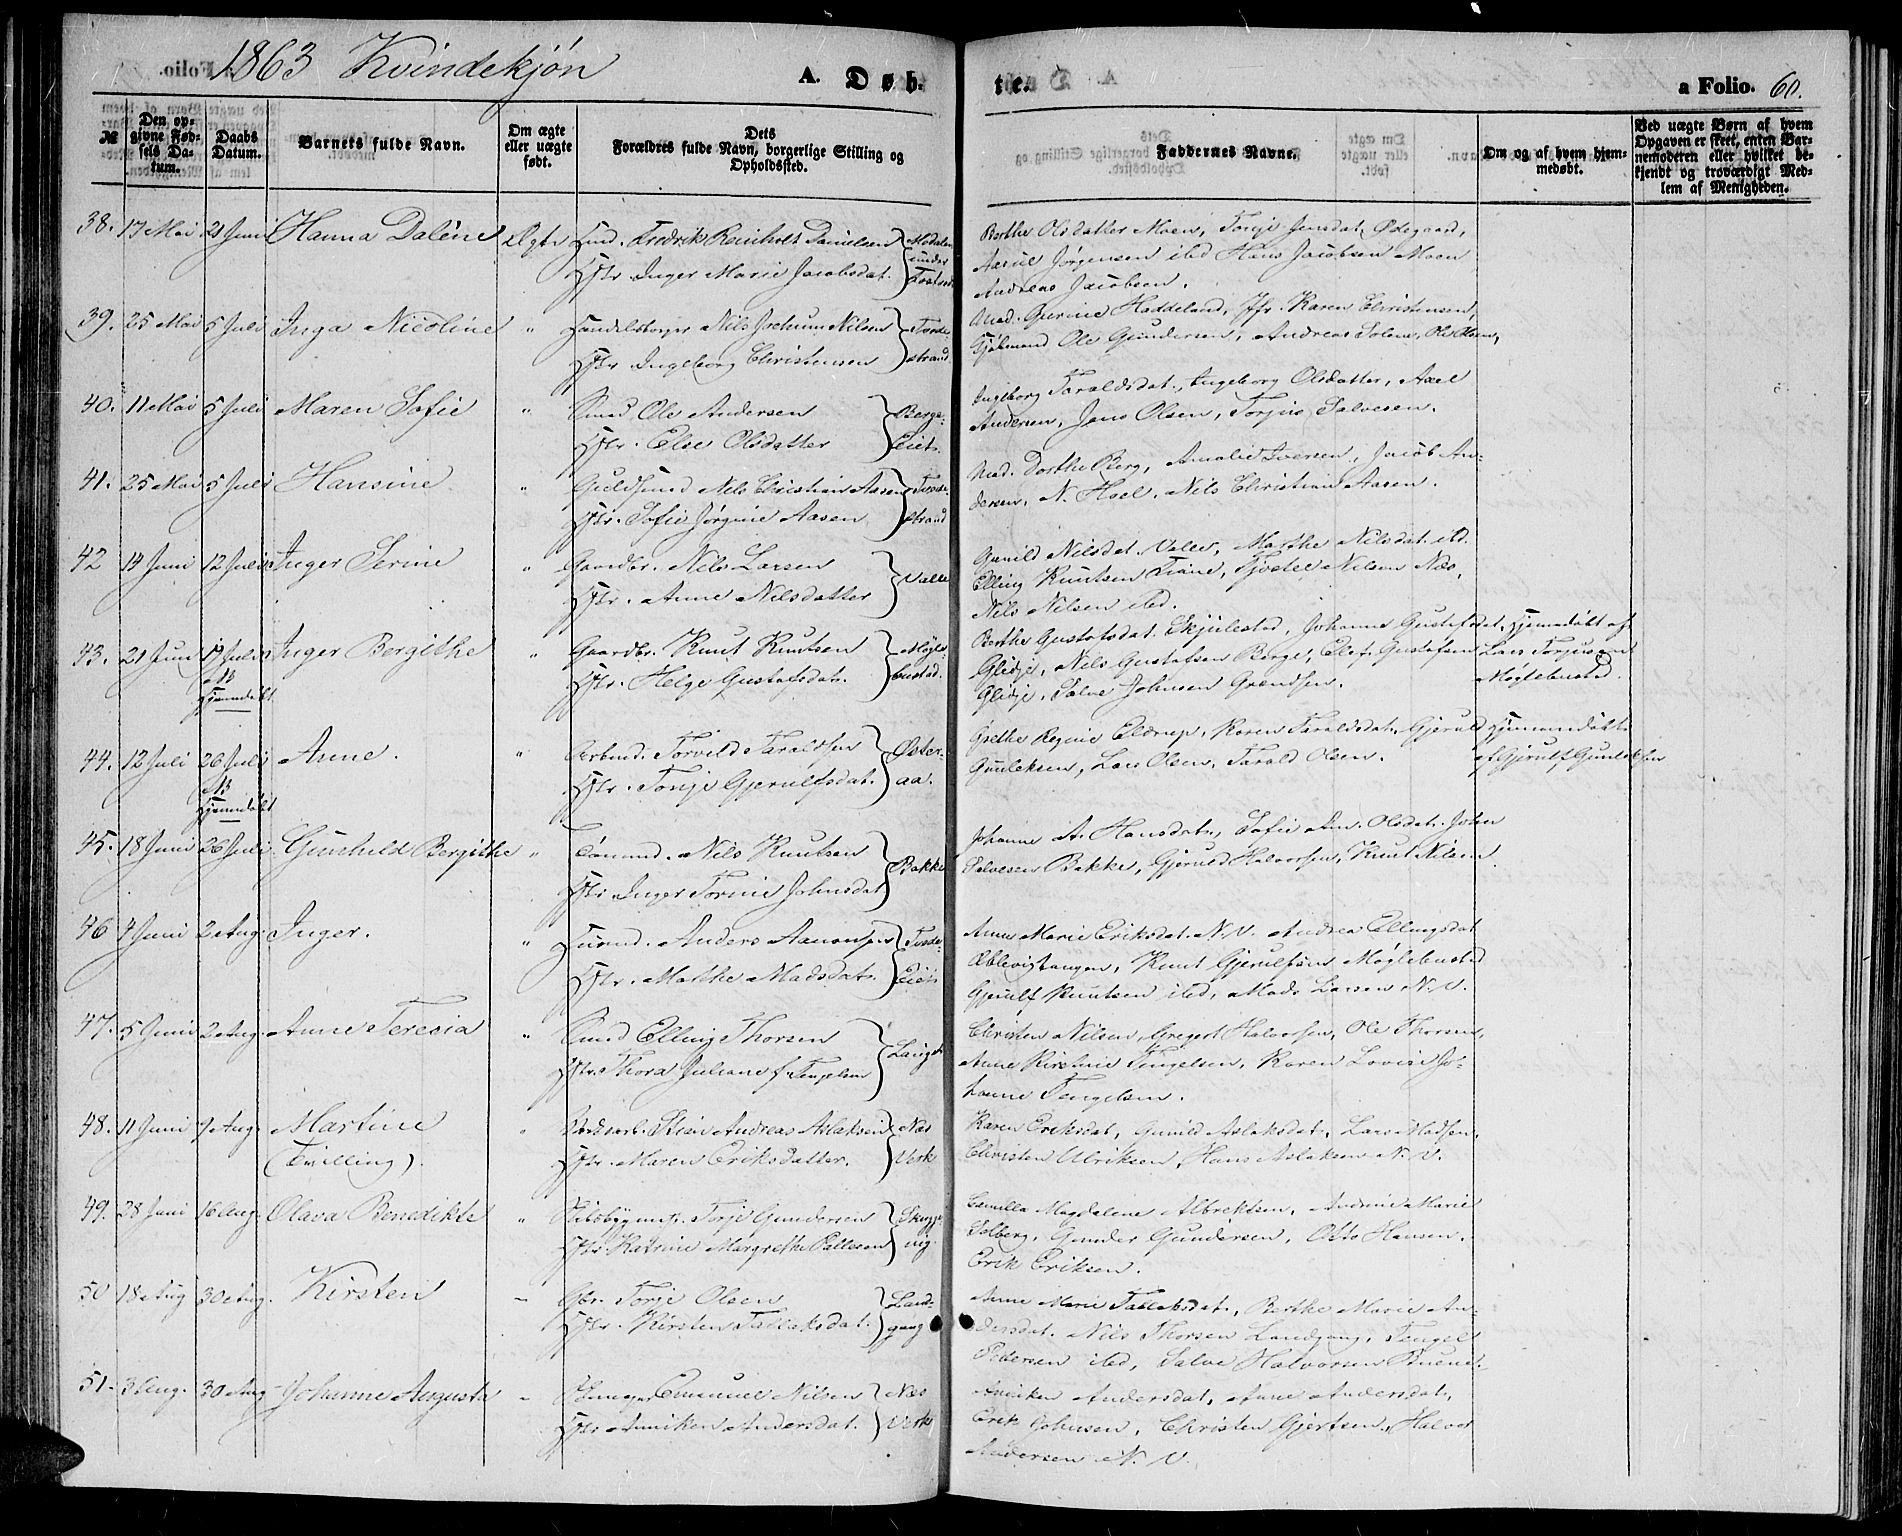 1863 Kvindekjøn
A. Døb-
te.
a Folio. 60.
№
Den opgivne Fødsels Datum.
Daabs Datum.
Barnets fulde Navn.
Om ægte eller uægte født.
Dets Forældres fulde Navn, borgerlige Stilling og Opholdssted.
Faddernes Navne.
Om og af hvem hjemmedøbt.
Ved uægte Børn af hvem Opgaven er skeet, enten Barnemoderen eller hvilket bekjendt og troværdigt Medlem af Menigheden.
38. 17 Mai 21 Juni Hanna Dalène Ægte Fredrik Reinholt Danielsen
Hstr. Inger Marie Jacobsdat.
Berthe Olsdatter Moen, Torje Jensdat. Ødegaard,
Jørgensen ibd Hans Jacobsen Moen
Andreas Jacobsen.
39. 25 Mai 5 Juli Inga Nicoline " Handelsborger Nils Jochum Nilsen Tvede-
Hstr. Ingeborg Christensen strand
Mad. Gurine Haddeland, Jfr. Karen Christensen,
Ole Gundersen, Andreas Solem, Ole Olsen,
40. 11 Mai 5 Juli Maren Sofie " Smed Ole Andersen Berge-
Hstr. Else Olsdatter Eiet.
Ingeborg Taraldsdat., Ingeborg Olsdatter, Axel
Andersen, Jens Olsen, Torjus Salvesen.
41. 25 Mai 5 Juli Hansine " Guldsmed Nils Christian Aasen Tvede-
Hstr. Sofie Jørgine Aasen strand
Mad. Dorthe Berg, Amalie Iversen, Jacob An-
dersen, N. Hoel, Nils Christian Aasen.
42 14 Juni 12 Juli Inger Serine " Gaardbr. Nils Larsen Valle
Hstr. Anne Nilsdatter
Gunild Nilsdat. Valle, Marthe Nilsdat. ibd.
Elling Knutsen Fiane, Tjostel Nilsen Næs,
Nils Nilsen ibd.
43. 21 Juni 19 Juli Inger Bergithe " Gaardbr. Knut Knutsen Mögle-
NB Hjemmdøbt
Hstr. Helge Gustafsdat. bustad.
Berthe Gustafsdat. Skjulestad, Johanne Gustafsdat. Hjemmedøbt af
Glidje, Nils Gustafsen Berge, Elef Gustafsen Lars Torjusen
Glidje, Salve Johnsen Grændsen. Møglebustad.
44. 12 Juli 26 Juli Anne. " Arbmd. Torvild Taraldsen Øster-
NB Hjemmdøbt
Hstr. Torje Gjerulfsdat. aa.
Grethe Regine Eldrup, Karen Taraldsdat. Gjerulf Hjemmedøbt
Gunleksen, Lars Olsen, Tarald Olsen. af Gjerulf Gunleksen
45. 18 Juni 26 Juli Gunhild Bergithe " Nils Knutsen Bakke
Hstr. Inger Torine Johnsdat
Johanne A. Hansdat., Sofie Olsdat. John
Salvesen Bakke, Gjeruld Halvorsen, Knut Nilsen
46 4 Juni 2 Aug. Inger. " Anders Aanonsen Tvede-
Hstr. Marthe Madsdat. Eiet
Anne Marie Eriksdat. N. V. Andrea Ellingsdat
Æblevigtangen, Knut Gjerulfsen Møglebustad
Gjerulf Knutsen ibd, Mads Larsen N. V.
47. 5 Juni 2 Aug. Anne Teresia " Smed Elling Thorsen
Hstr. Thora Juliane f. Tengelsen
Christen Nilsen, Gregert Halvorsen, Ole Thorsen,
Anne Kirstine Tengelsen, Karen Lovise Jo-
hanne Tengelsen.
48. 11 Juni 9 Aug. Martine " Stian Andreas Aslaksen Næs
(Tvilling). Hstr. Maren Eriksdatter. Verk
Karen Eriksdat, Gunild Aslaksdat, Lars Madsen,
Christen Ulriksen, Hans Aslaksen N. V.
49. 28 Juni 16 Aug. Olava Benedikte " Skibsbygmst. Torje Gundersen
Hstr. Katrine Margrethe Pallesen
Camilla Magdalene Albrektsen, Andrine Marie
Solberg, Gunder Gundersen, Osto Hansen.
Erik Eriksen.
50 18 Aug 30 Aug. Kirsten " Gbr. Torje Olsen Land-
Hstr. Kirsten Tallaksdat. gang
Anne Marie Tallaksdat., Berthe Marie An-
dersdat. Nils Thorsen Landgang, Tengel
Pedersen ibd, Salve Halvorsen
51. 3 Aug. 30 Aug Johanne Augusta " Emanuel Nilsen Næs
Hstr Anniken Andersdat. Verk
Aniken Andersdat, Anne Andersdat,
Erik Johnsen, Christen Gjertsen, Halvor
Andersen N. V.